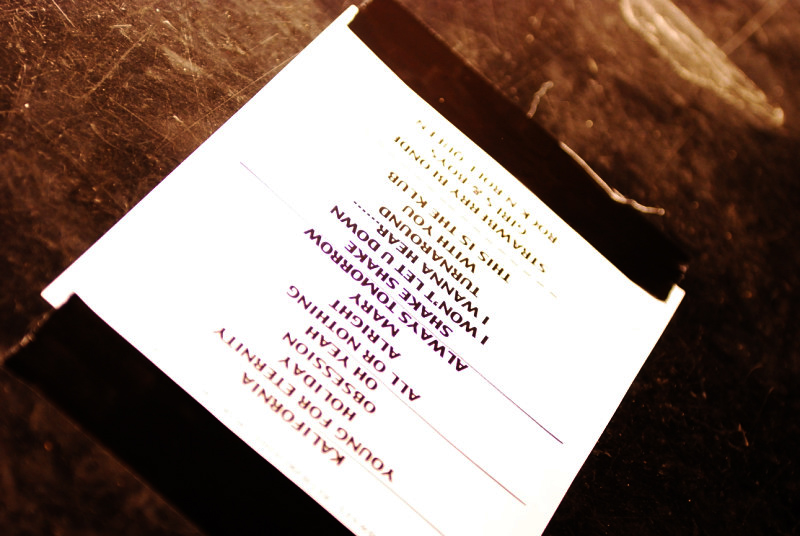 KALIFORNIA
YOUNG FOR ETERNITY
HOLIDAY
OBSESSION
OH YEAH
ALL OR NOTHING
ALRIGHT
MARY
ALWAYS TOMORROW
SHAKE SHAKE
I WON'T LET U DOWN
I WANNA HEAR------
TURNAROUND
WITH YOU
THIS IS THE KLUB
STRAWBERRY BLONDE
GIRLS & BOYS
ROCK N ROLL QUEEN